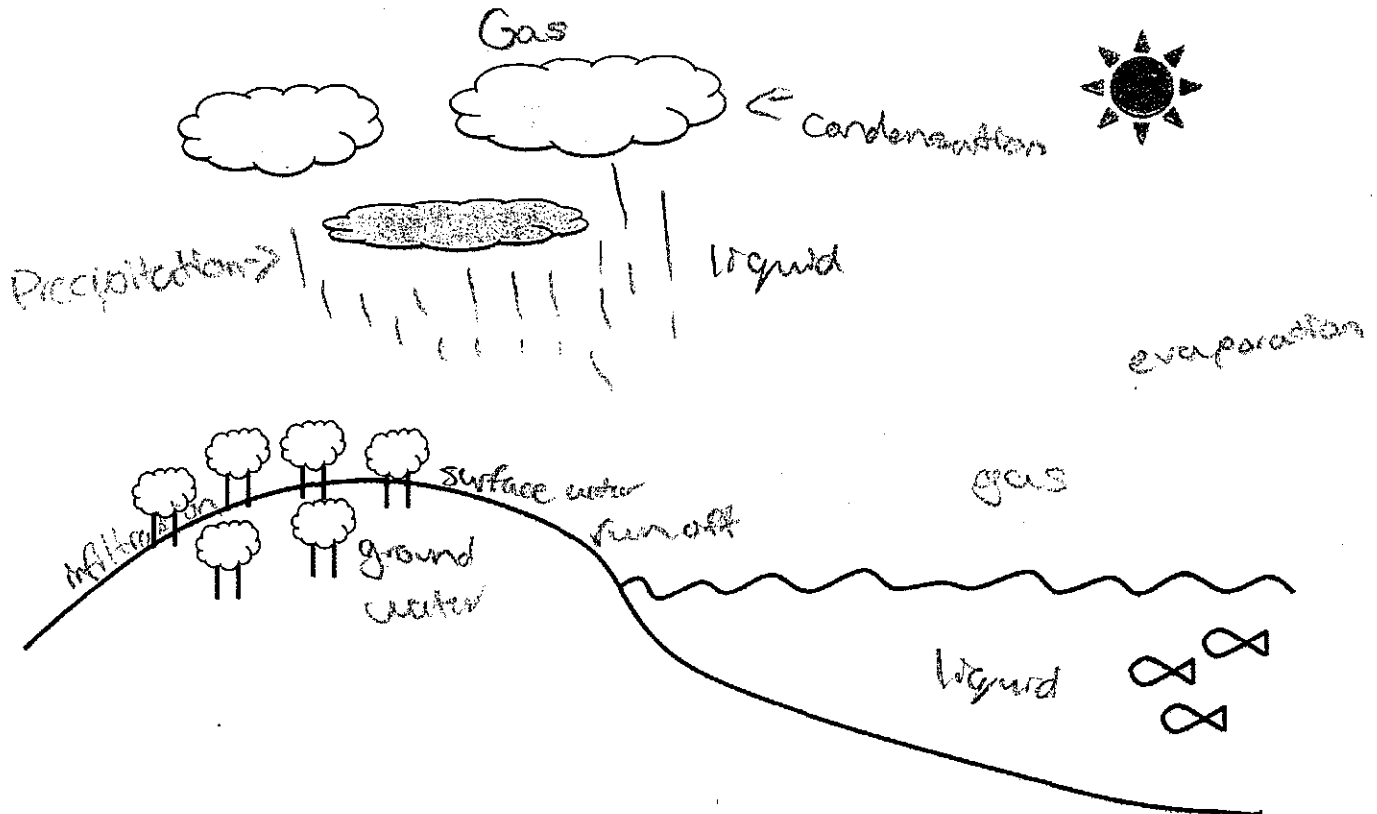 Gas
condensation
Precipitation →
liquid
evaporation
surface water
gas
runoff
infiltration
ground
water
liquid